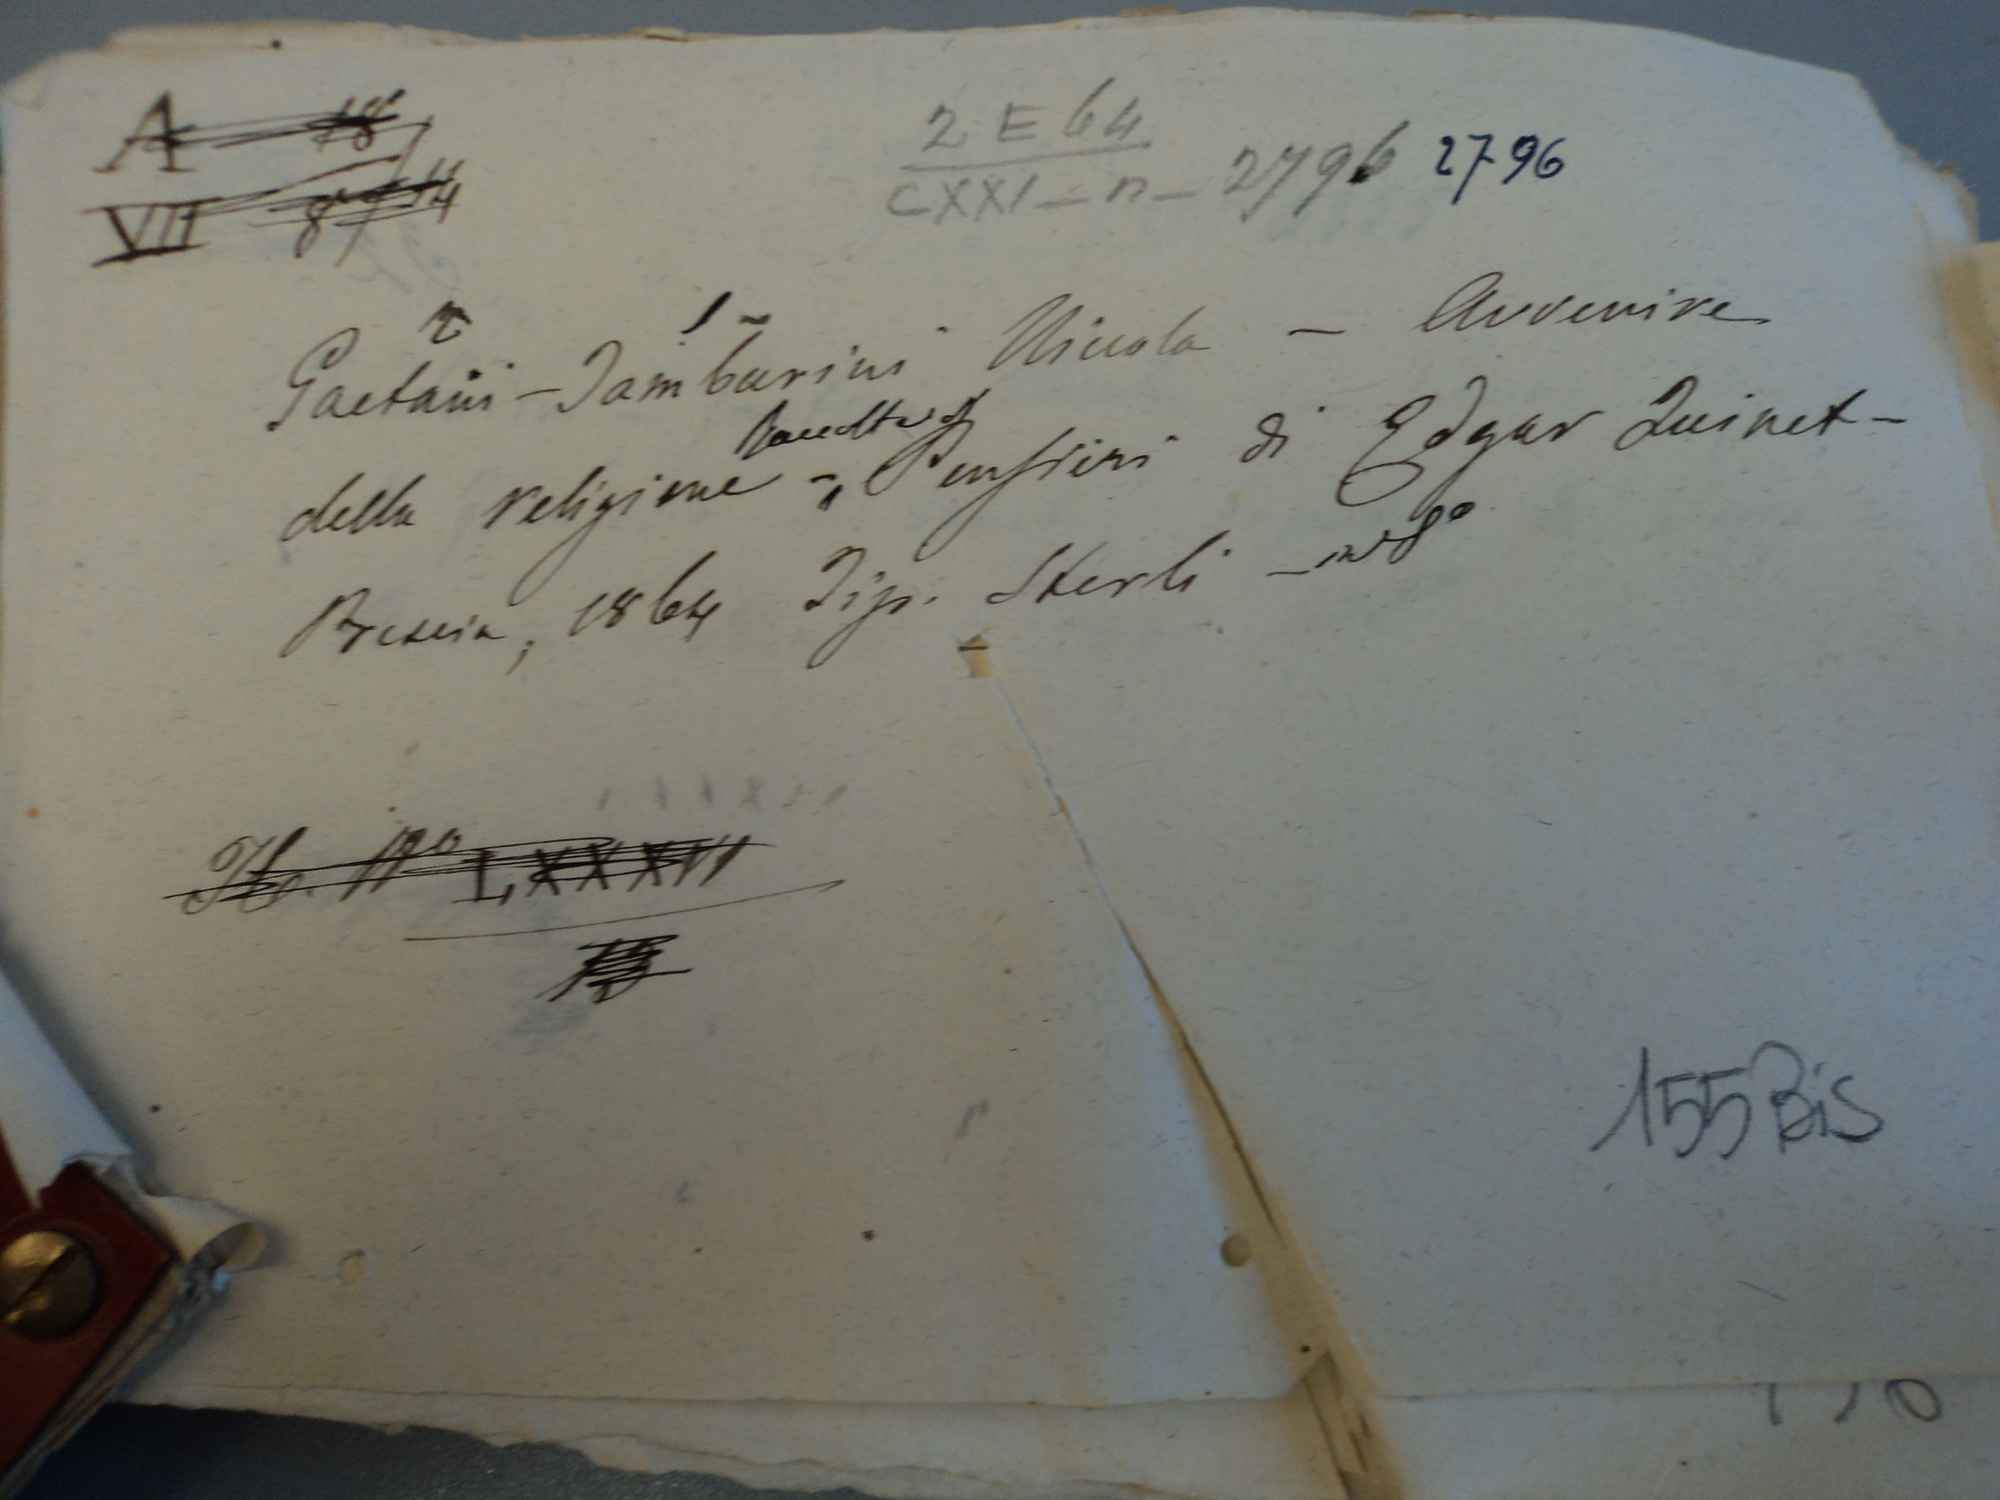 A 18
VII 87 14
2 E 64
CXXI - n - 2796 2796
2 1
Gaetani - Tamburini Niccola - Avvenire
della religione - Raccolta di Pensieri di Edgar Quinet -
Brescia, 1864 Tip. Sterli - in 8º
LXXXVI
155 Bis